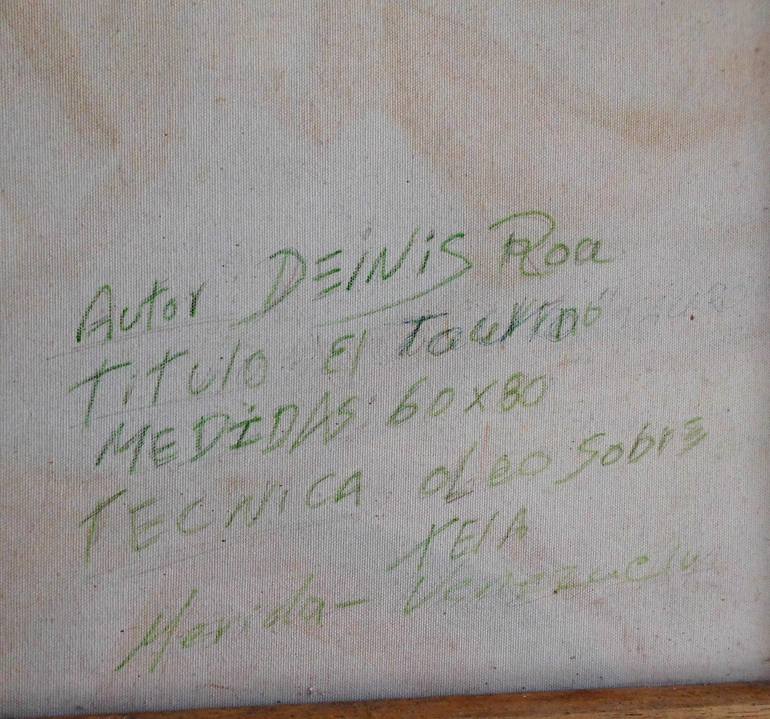 Autor DEiNiS Roa
TiTulo El
MEDIDAS: 60x80
TECNiCA oLeo Sobre
TElA
Merida - Venezuela